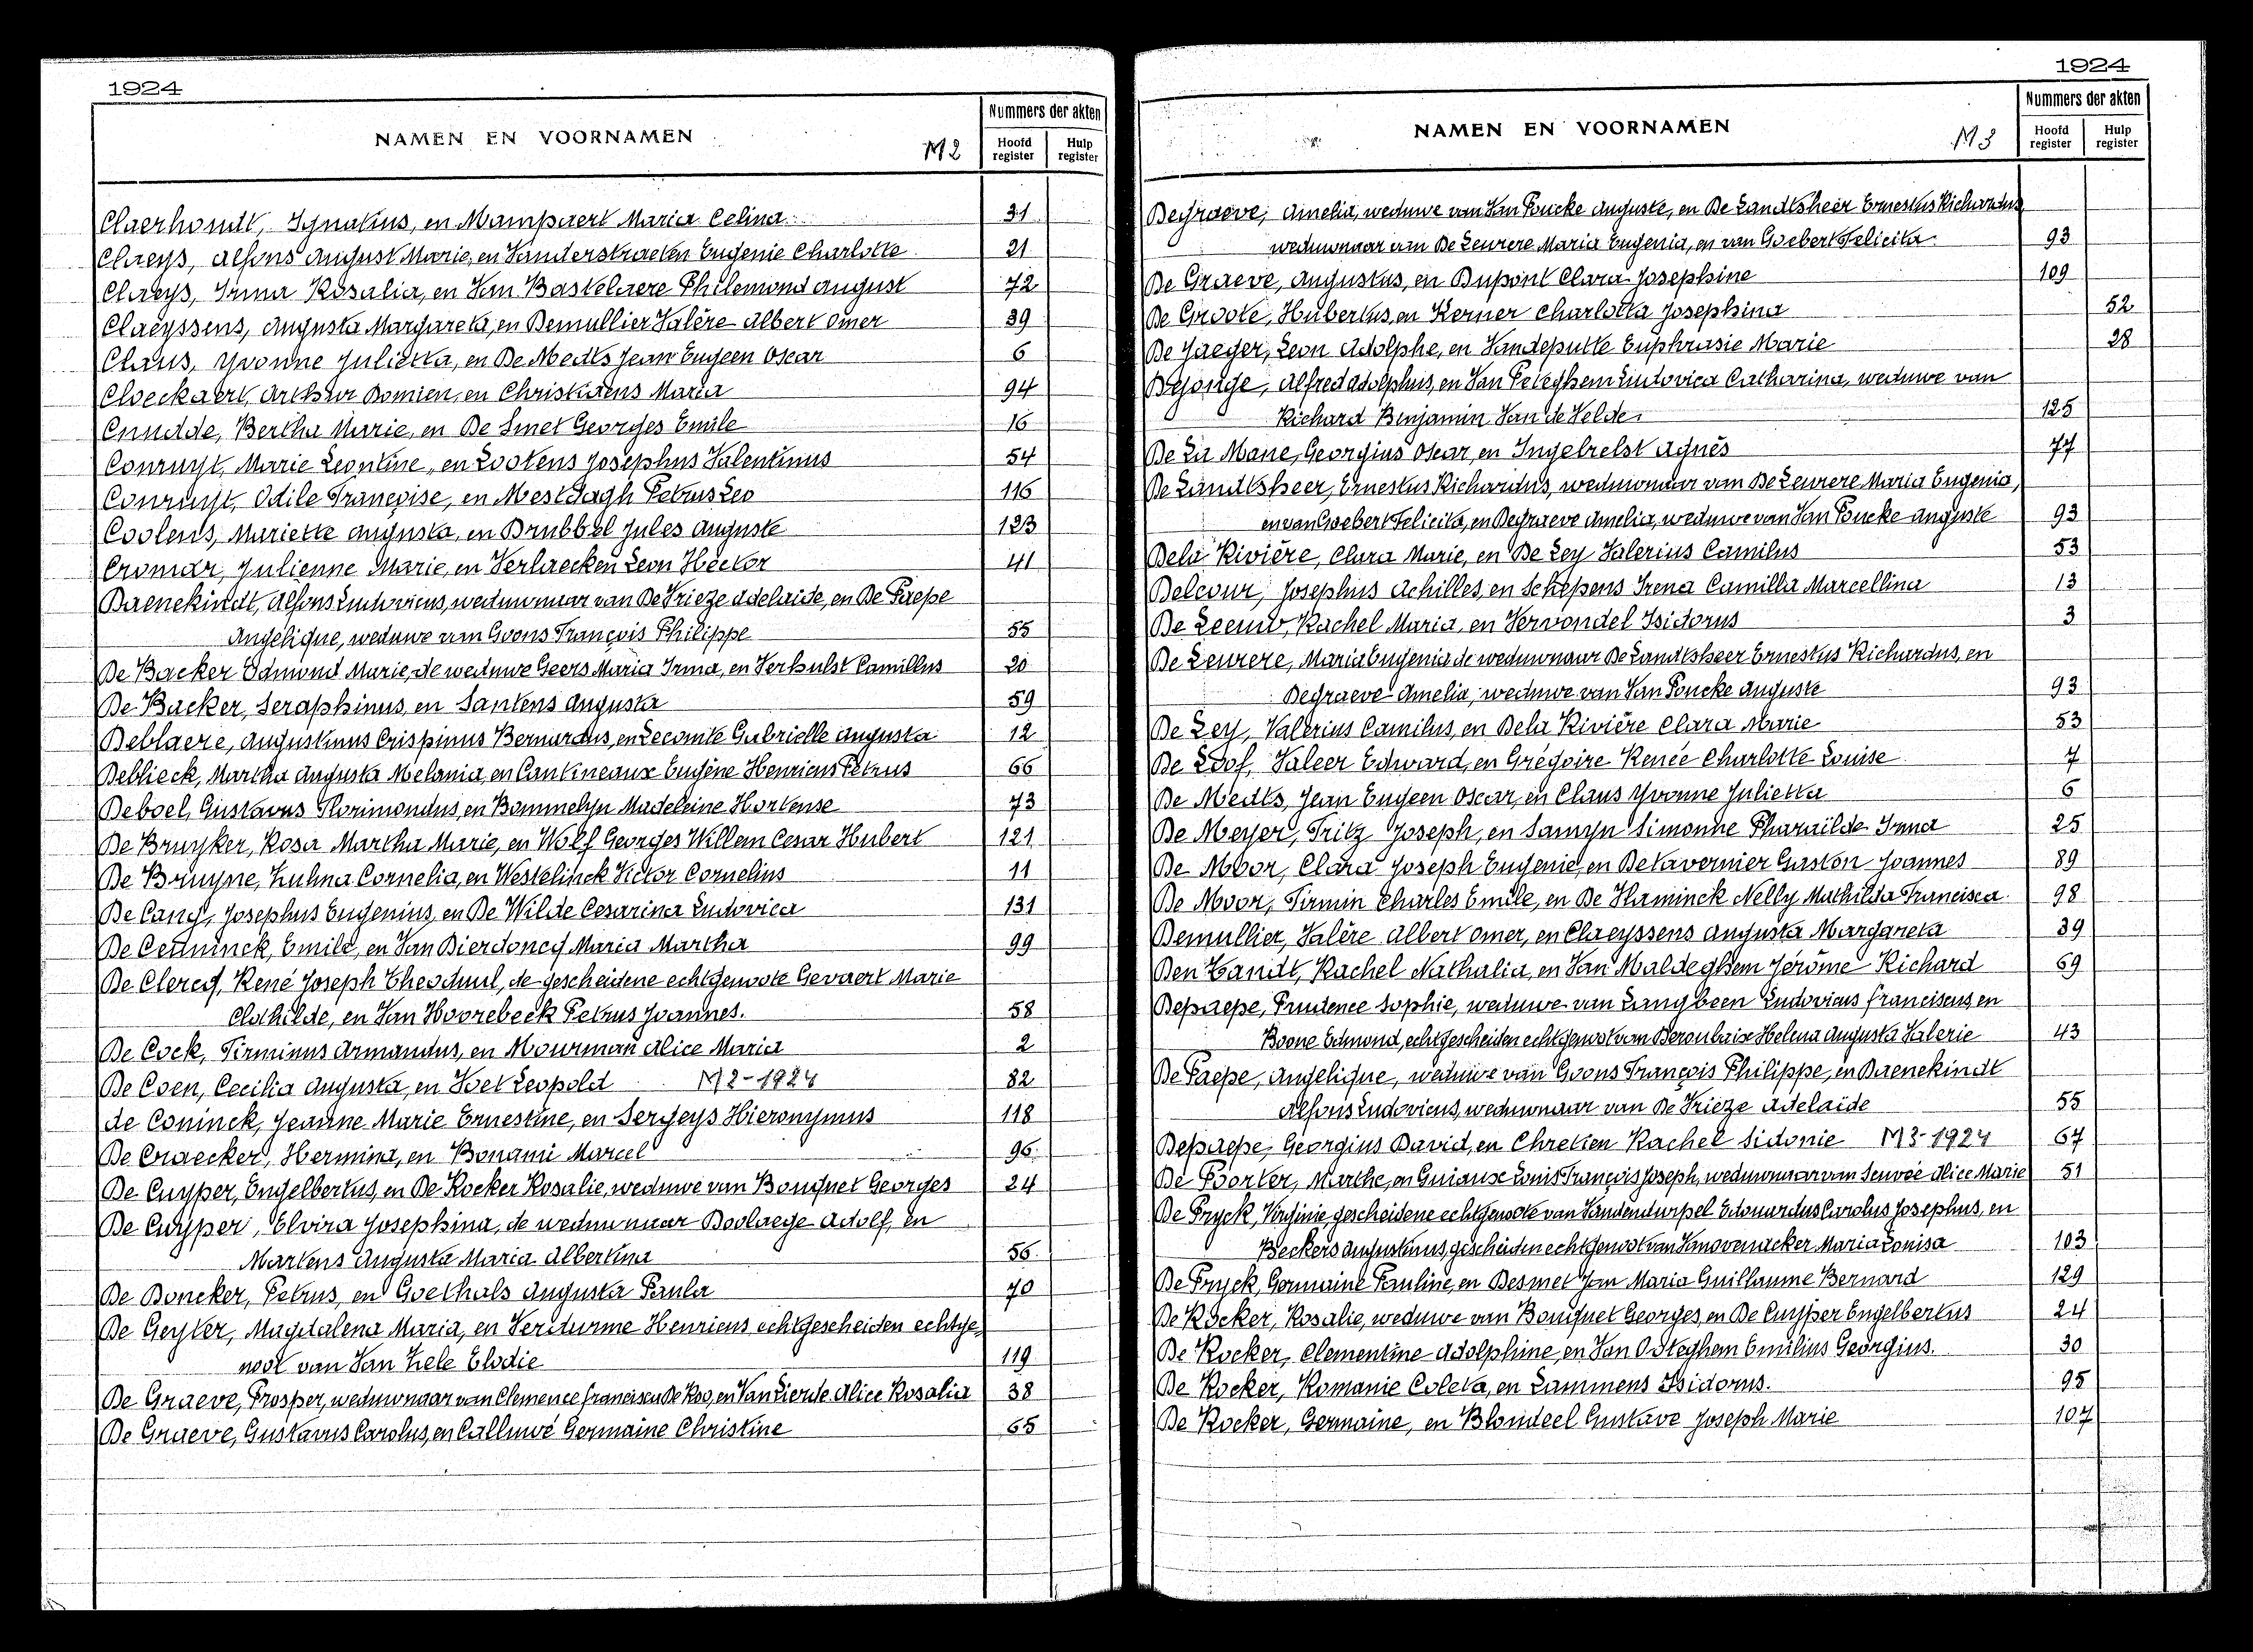 1924
NAMEN EN VOORNAMEN
M2
Nummers der akten
Hoofd register
Hulp register
Claerhoudt, Ignatius, en Mampaert Maria Celina 31
Claeys, Alfons August Marie, en Vanderstraeten Eugenie Charlotte 21
Claeys, Irma Rosalia, en Van Bastelaere Philemond August 72
Claeyssens, Augusta Margareta, en Demullier Valère Albert Omer 39
Claus, Yvonne Julietta, en De Medts Jean Eugeen Oscar 6
Cloeckaert, Arthur Domien, en Christiaens Maria 94
Cnudde, Bertha Marie, en De Smet Georges Emile 16
Conruyt, Marie Leontine, en Lootens Josephus Valentinus 54
Conruyt, Odile Françoise, en Mestdagh Petrus Leo 116
Coolens, Mariette Augusta, en Drubbel Jules Auguste 123
Cromar, Julienne Marie, en Verhaecken Leon Hector 41
Daenekindt, Alfons Ludovicus, weduwnaar van De Vrieze Adelaide, en De Paepe
Angelique, weduwe van Goons François Philippe 55
De Backer Edmond Marie, de weduwe Geers Maria Irma, en Verhulst Camillus 20
De Backer, Seraphinus, en Santens Augusta 59
Deblaere, Augustinus Crispinus Bernardus, en Lecomte Gabrielle Augusta 12
Deblieck, Martha Augusta Melania, en Cantineaux Eugène Henricus Petrus 66
Deboel, Gustavus Florimondus, en Bommelyn Madeleine Hortense 73
De Bruyker, Rosa Martha Marie, en Wolf Georges Willem Cesar Hubert 121
De Bruyne, Zulma Cornelia, en Westelinck Victor Cornelius 11
De Cang, Josephus Eugenius, en De Wilde Cesarina Ludovica 131
De Ceuninck, Emile, en Van Bierdoncq Maria Martha 99
De Clercq, René Joseph Theoduul, de gescheidene echtgenoote Gevaert Marie
Clothilde, en Van Hoorebeeck Petrus Joannes. 58
De Cock, Firminus Armandus, en Mourman Alice Maria 2
De Coen, Cecilia Augusta, en Voet Leopold M2-1924 82
de Coninck, Jeanne Marie Ernestine, en Sergeys Hieronymus 118
De Craecker, Hermina, en Bonami Marcel 96
De Cuyper, Engelbertus, en De Rocker Rosalie, weduwe van Bouquet Georges 24
De Cuyper, Elvira Josephina, de weduwnaar Boolaege Adolf, en
Martens Augusta Maria Albertina 56
De Doncker, Petrus, en Goethals Augusta Paula 70
De Geyter, Magdalena Maria, en Verdurme Henricus echtgescheiden echtge,
noot van Van Hele Elodie 119
De Graeve, Prosper, weduwnaar van Clemence Francisca De Roo, en Van Lierde Alice Rosalia 38
De Graeve, Gustavus Carolus, en Calluwé Germaine Christine 65
1924
NAMEN EN VOORNAMEN
M3
Nummers der akten
Hoofd register
Hulp register
Degraeve, Amelia, weduwe van Van Poucke Auguste, en De Landtsheer Ernestus Richardus,
weduwnaar van De Leurere Maria Eugenia, en van Goebert Felicita 93
De Graeve, Augustus, en Dupont Clara Josephine 109
De Groote, Hubertus, en Kerner Charlotta Josephina 52
De Jaeger, Leon Adolphe, en Vandeputte Euphrasie Marie 28
Dejonge, Alfred Adolphus, en Van Peteghem Ludovica Catharina, weduwe van
Richard Benjamin Van de Velde. 125
De La Mane, Georgius Oscar, en Ingelrelst Agnès 77
De Landtsheer, Ernestus Richardus, weduwnaar van De Leurere Maria Eugenia,
en van Goebert Felicita, en Degraeve Amelia, weduwe van Van Poucke Auguste 93
Dela Rivière, Clara Marie, en De Ley Valerius Camilus 53
Delcour, Josephus Achilles, en Schepens Irena Camilla Marcellina 13
De Leeuw, Rachel Maria, en Vervondel Isidorus 3
De Leurere, Maria Eugenia de weduwnaar De Landtsheer Ernestus Richardus, en
Degraeve Amelia, weduwe van Van Poucke Auguste 93
De Ley, Valerius Camilus, en Dela Rivière Clara Marie 53
De Loof, Valeer Edward, en Grégoire Renée Charlotte Louise 7
De Medts, Jean Eugeen Oscar, en Claus Yvonne Julietta 6
De Meyer, Fritz Joseph, en Samyn Simonne Pharailde Irma 25
De Moor, Clara Joseph Eugenie, en Detavernier Gaston Joannes 89
De Moor, Firmin Charles Emile, en De Vlaminck Nelly Mathilda Francisca 98
Demullier, Valère Albert Omer, en Claeyssens Augusta Margareta 39
Den Tandt, Rachel Nathalia, en Van Maldeghem Jérôme Richard 69
Depaepe, Prudence Sophie, weduwe van Langbeen Ludovicus Franciscus, en
Boone Edmond, echtgescheiden echtgenoot van Deroubaix Helena Augusta Valerie 43
De Paepe, Angelique, weduwe van Goons François Philippe, en Daenekindt
Alfons Ludovicus, weduwnaar van De Vrieze Adelaide 55
Depaepe, Georgius David, en Chretien Rachel Sidonie M3-1924 67
De Poorter, Marthe, en Guiaux Louis François Joseph, weduwnaar van Senvée Alice Marie 51
De Pryck, Virginie, gescheidene echtgenote van Vandendurpel Edouardus Carolus Josephus, en
Beckers Augustinus, gescheiden echtgenoot van Vanovenacker Maria Louisa 103
De Pryck, Germaine Pauline, en Desmet Jan Maria Guillaume Bernard 129
De Rocker, Rosalie, weduwe van Bouquet Georges, en De Cuyper Engelbertus 24
De Rocker, Clementine Adolphine, en Van Osteghem Emilius Georgius. 30
De Rocker, Romanie Coleta, en Lammens Isidorus. 95
De Rocker, Germaine, en Blondeel Gustave Joseph Marie 107